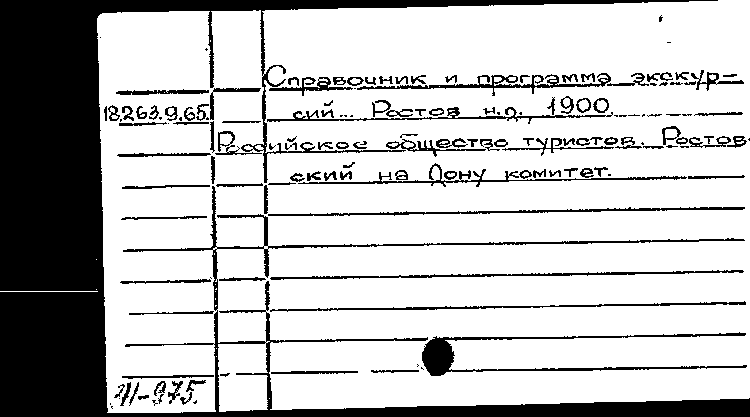 Справочник и программа экскур-
18.263.9.65. сий... Ростов н.Д., 1900.
Российское общество туристов. Ростов-
ский на Дону комитет.
-975.